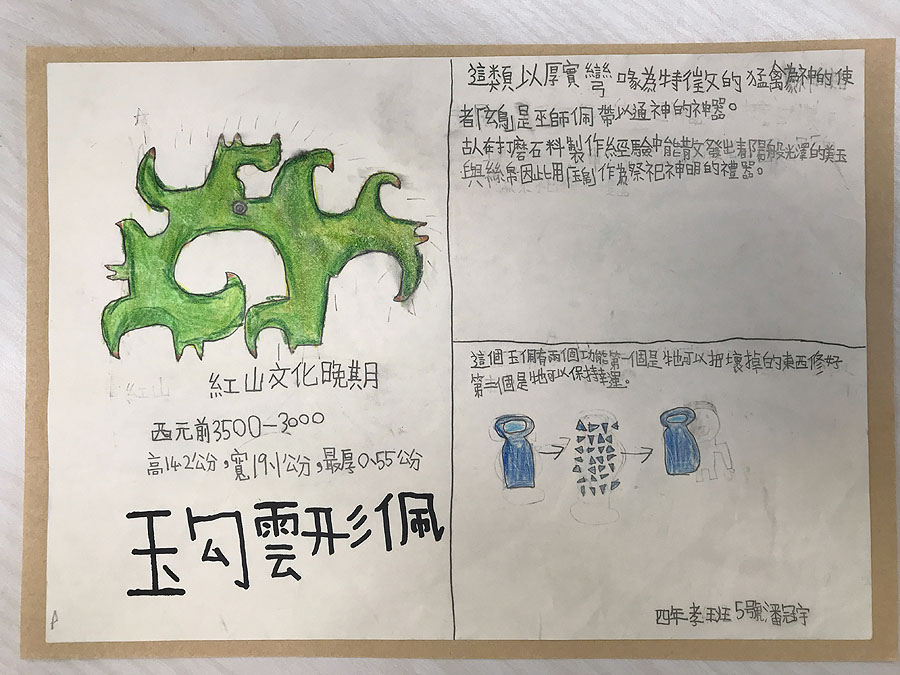 紅山文化晚期
西元前3500-3000
高14.2公分,寬19.1公分,最厚0.55公分
玉勾雲形佩
這類以厚實彎喙為特徵的猛禽為神的使
者「玄鳥」是巫師佩帶以通神的神器。
故在打磨石料製作經驗中能散發出春陽般光澤的美玉
與絲帛因此用作為祭祀神明的禮器。
這個玉佩有兩個功能第一個是牠可以把壞掉的東西修好
第二個是牠可以保持幸運。
四年孝班5號潘冠宇